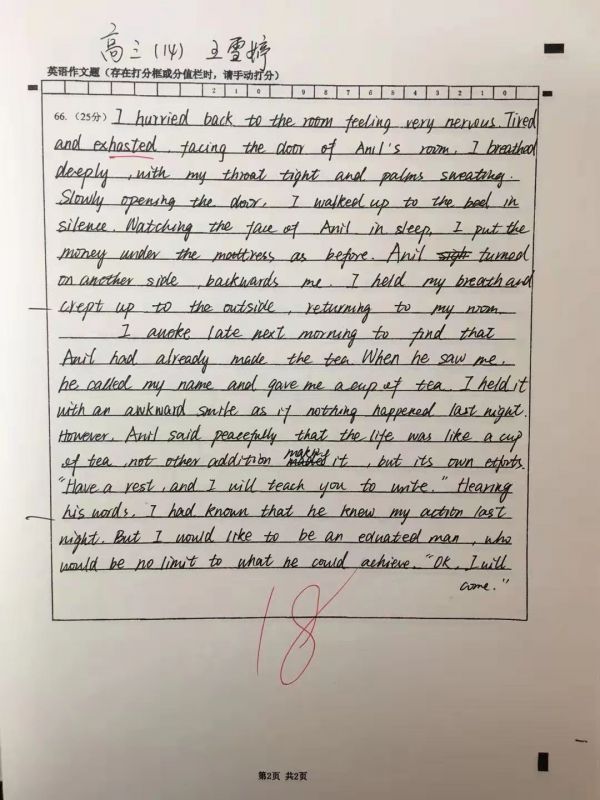 高三(14) 王雪婷
英语作文题(存在打分框或分值栏时,请手动打分)
2 1 0 9 8 7 6 5 4 3 2 1 0
66.(25分) I hurried back to the room feeling very nervous. Tired
and exhasted, facing the door of Anil's room, I breathed
deeply, with my throat tight and palms sweating.
Slowly opening the door, I walked up to the bed in
silence. Watching the face of Anil in sleep, I put the
money under the mattress as before. Anil turned
on another side, backwards me. I held my breath and
crept up to the outside, returning to my room.
I awoke late next morning to find that
Anil had already made the tea. When he saw me,
he called my name and gave me a cup of tea. I held it
with an awkward smile as if nothing happened last night.
However, Anil said peacefully that the life was like a cup
of tea, not other addition making it, but its own efforts.
"Have a rest, and I will teach you to write." Hearing
his words, I had known that he knew my action last
night. But I would like to be an eduated man, who
would be no limit to what he could achieve. "OK, I will
come."
18
第2页 共2页